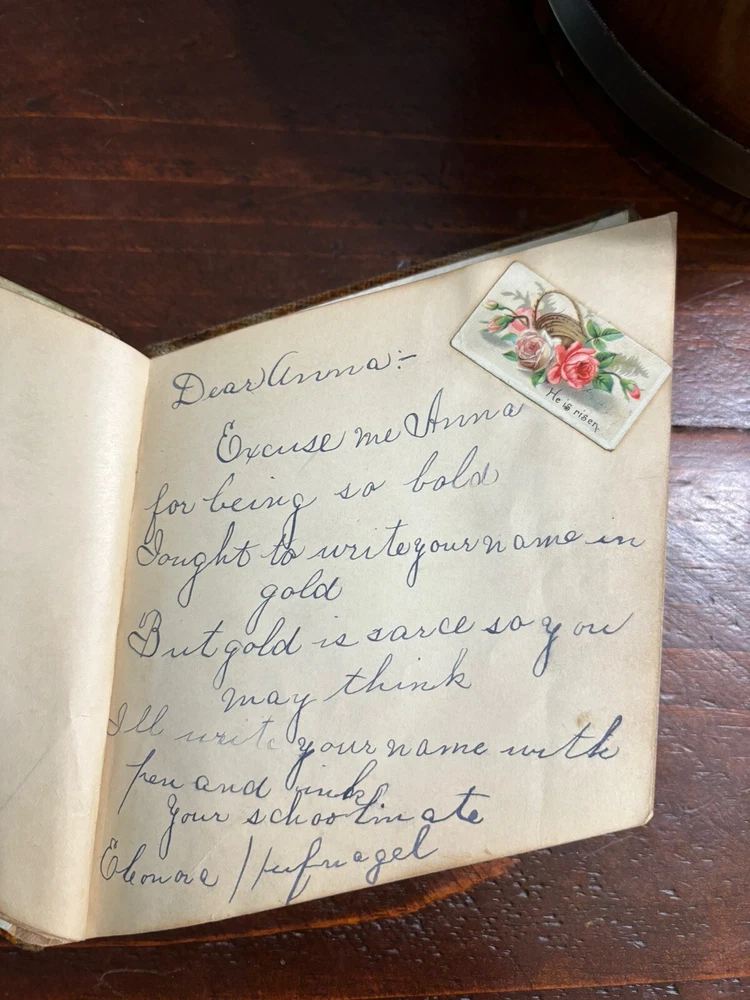 Dear Anna:-
Excuse me Anna
for being so bold
I ought to write your name in
gold
But gold is sarce so you
may think
I'll write your name with
pen and ink
Your schoolmate
Eleonora Hufnagel
He is risen